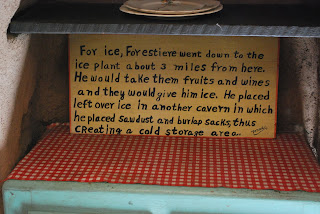 For ice, Forestiere went down to the
ice plant about 3 miles from here.
He would take them fruits and wines
and they would give him ice. He placed
left over ice in another cavern in which
he placed sawdust and burlap sacks, thus
creating a cold storage area.